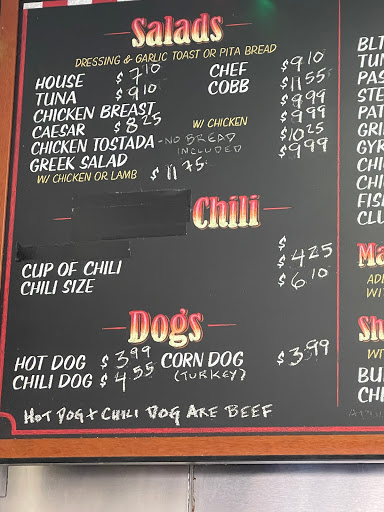 Salads
DRESSING & GARLIC TOAST OR PITA BREAD
HOUSE $7.10 CHEF $9.10
TUNA $9.10 COBB $11.55
CHICKEN BREAST $9.99
CAESAR $8.25 W/ CHICKEN $9.99
CHICKEN TOSTADA - NO BREAD INCLUDED $10.25
GREEK SALAD $9.99
W/ CHICKEN OR LAMB $11.75
Chili
$
CUP OF CHILI $4.25
CHILI SIZE $6.10
Dogs
HOT DOG $3.99 CORN DOG $3.99
CHILI DOG $4.55 (TURKEY)
HOT DOG & CHILI DOG ARE BEEF
BLT
TUN
PAS
STE
PAT
GRI
GYR
CHI
CHI
FIS
CLU
Ma
ADD
WIT
Sh
WIT
BU
CHE